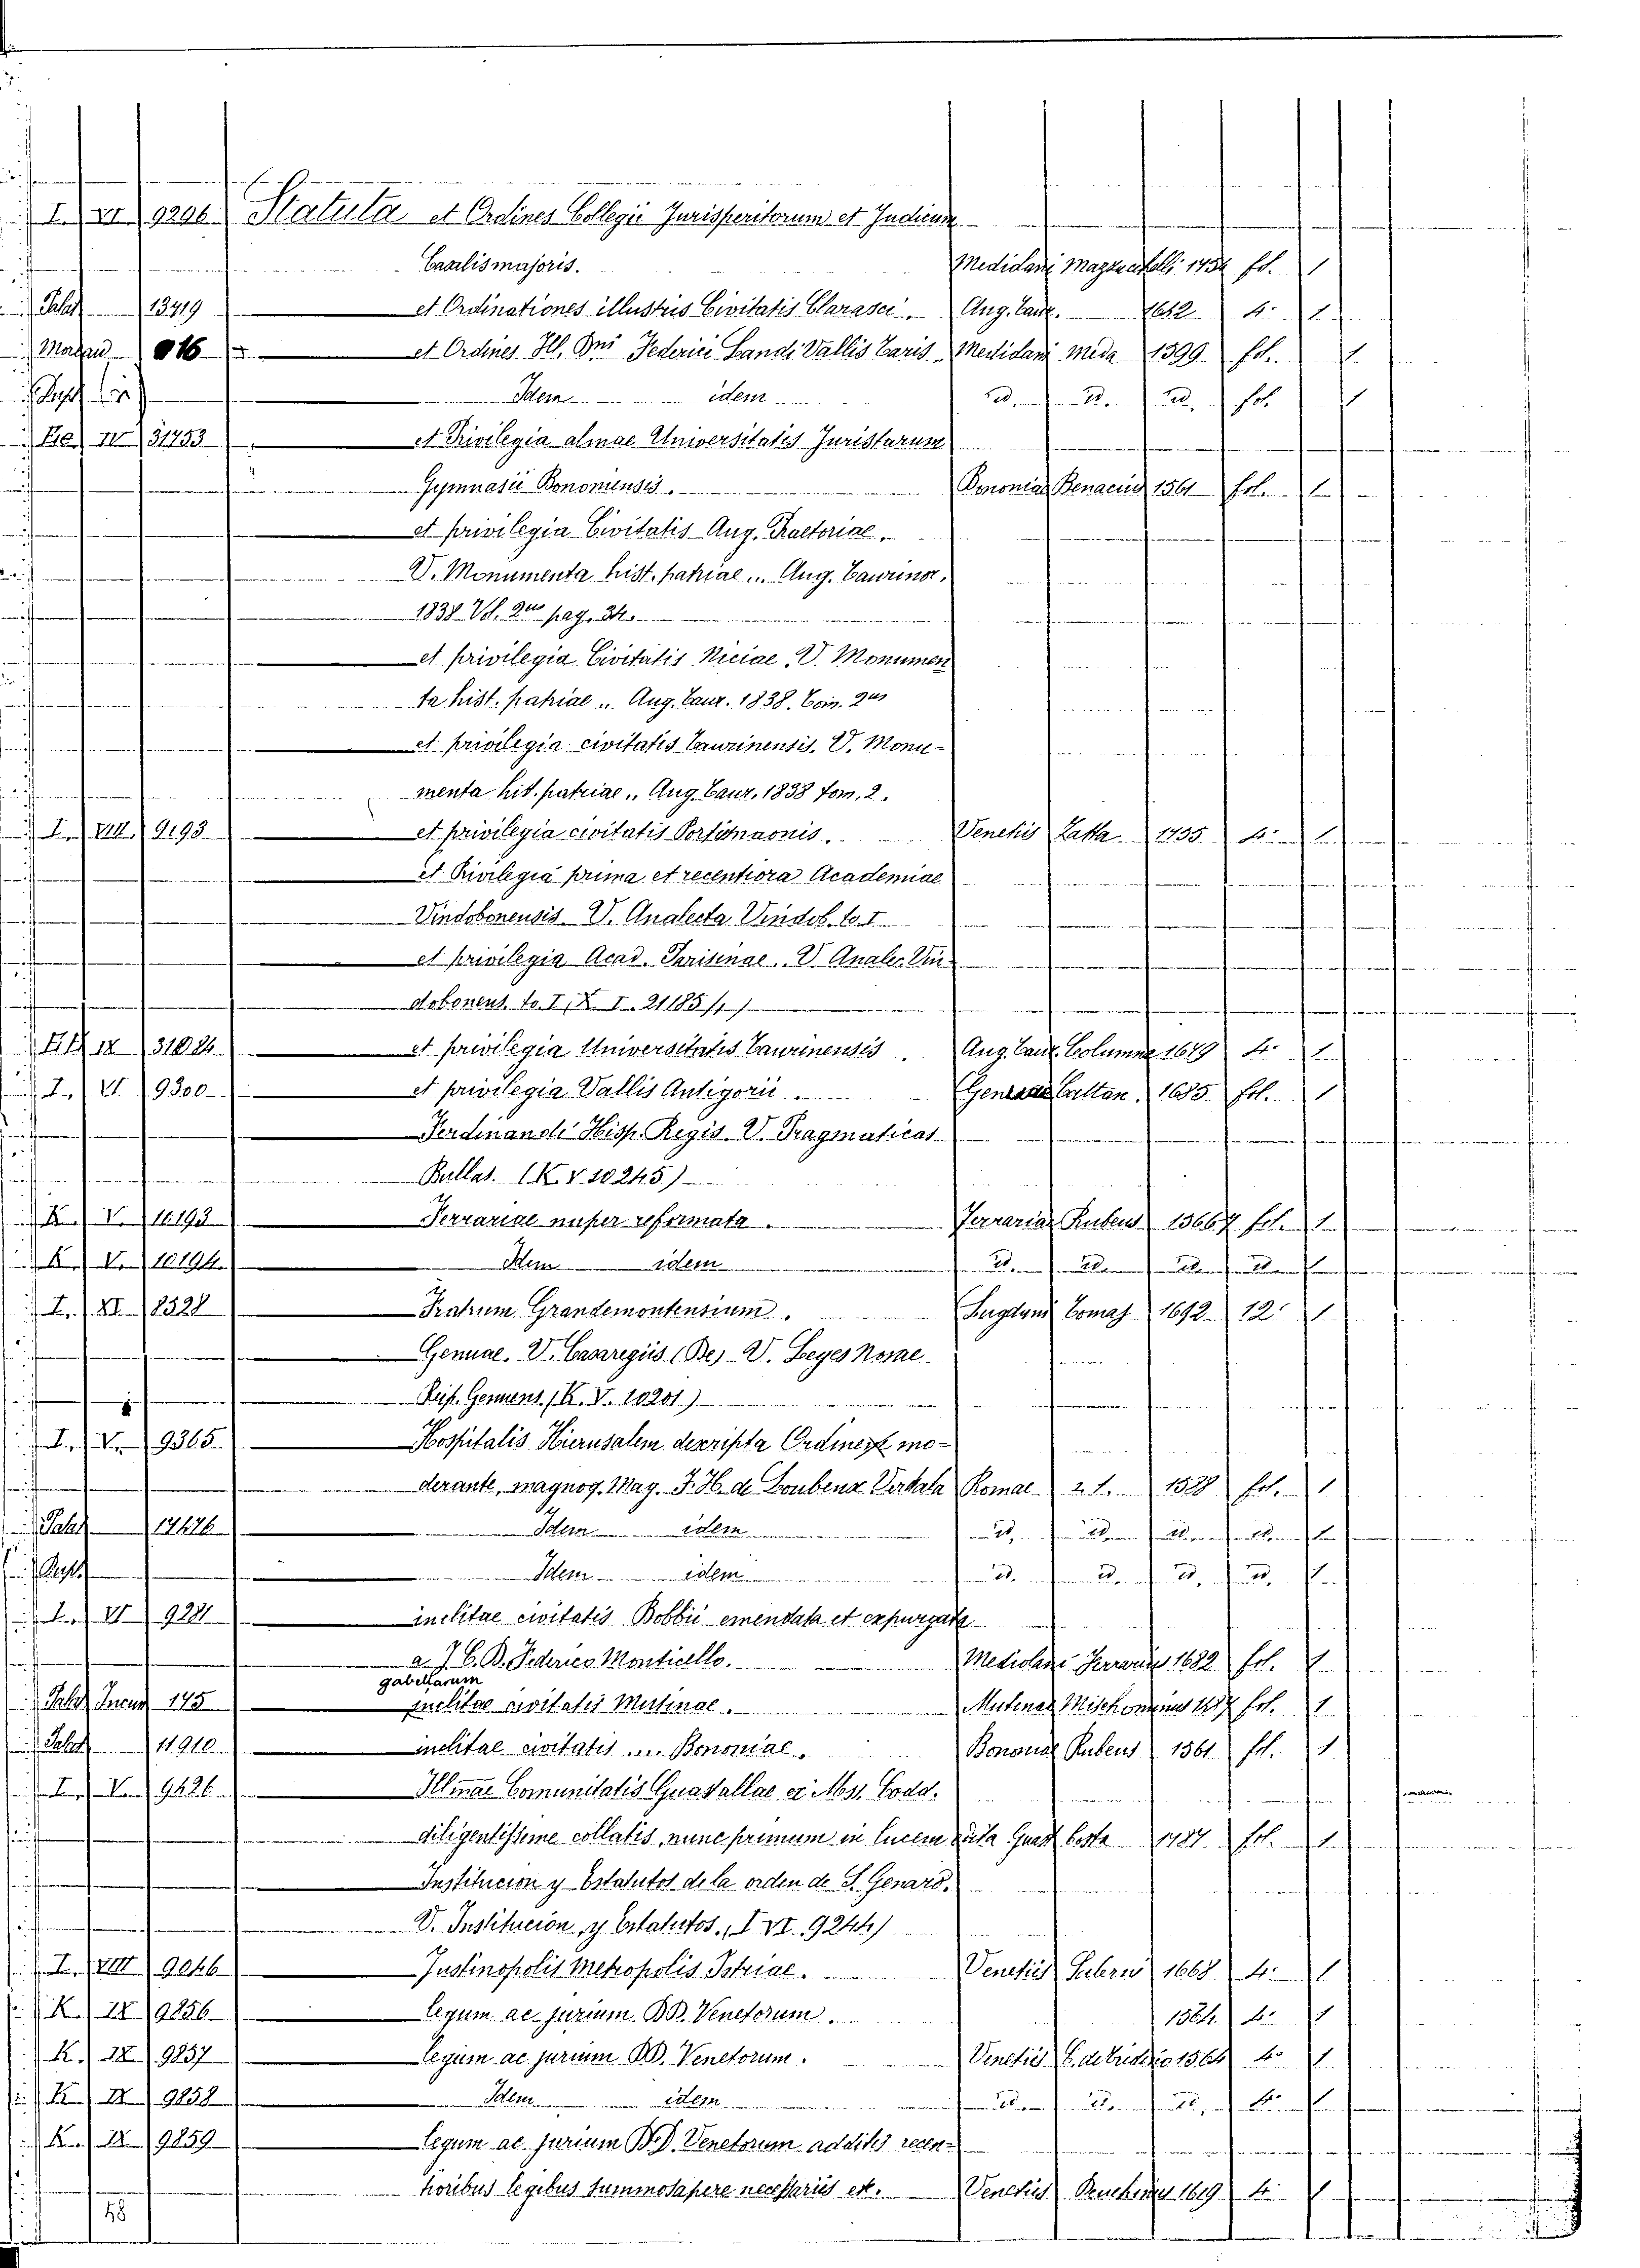 I. VI 9296 Statuta et Ordines Collegii Jurisperitorum et Judicum
Casalismajoris. Medidani 1754 fol. 1
13419 et Ordinationes illustris Civitatis Clarasci. Aug. Taur. 1642 4: 1
et Ordines Ill. Dni Federici Landi Vallis Taris Medidani Meda 1599 fol. 1
Idem idem id. id. id. fol. 1
31753 et Privilegia almae Universitatis Juristarum
Gymnasii Bononiensis. Bononiae Benacius 1561 fol. 1
et privilegia Civitatis Aug. Praetoriae.
V. Monumenta hist. patriae... Aug. Taurinor.
1838 Vol. 2us pag. 34.
et privilegia Civitatis Niciae. V. Monumen
ta hist. patriae.. Aug. Taur. 1838. Tom. 2us
et privilegia civitatis Taurinensis. V. Monu-
menta hit. patriae.. Aug Taur. 1838 tom. 2.
I. VIII. 9193 et privilegia civitatis Portusnaonis. Venetiis Zatta 1755 4: 1
et Privilegia prima et recentiora Academiae
Vindobonensis V. Analecta Vindob. to. I
et privilegia Acad. Parisinae. V. Analec. Vin-
dobonens. to. I, X. I. 21185/1/
IX 31024 et privilegia Universitatis Taurinensis. Aug. Taur. Columna 1679 4: 1
I. VI 9300 et privilegia Vallis Antigorii. 1685 fol. 1
Ferdinandi Hisp. Regis. V. Pragmaticas
Bullas. (K. V. 10245)
K. V. 10193 Ferrariae nuper reformata. Ferrariae Rubeus fol. 1
K. V. 10194 Idem idem id. id. id. id. 1
I. XI 8528 Fratrum Grandemontensium. Lugduni Comas 1692 12: 1
Genuae. V. Casaregiis (De) V. Leges Novae
Reip. Genuens. (K. V. 10201)
I. V. 9365 Hospitalis Hierusalem descripta Ordines mo-
derante, magnoq. Mag. J. H. de Loubenx Verdala Romae 2. 1. 1588 fol. 1
17676 Idem idem id. id. id. id. 1
Idem idem id. id. id. id. 1
I. VI 9281 inclitae civitatis Bobbii emendata et expurgata
a J. C. D. Federico Monticello. Mediolani Ferrarius 1682 fol. 1
gabellarum
175 inclitae civitatis Mutinae. Mutinae fol. 1
11910 inclitae civitatis ... Bononiae. Bononiae Rubeus 1561 fol. 1
I. V. 9626 Illmae Comunitatis Guastallae ex Mss. Codd.
diligentissime collatis, nunc primum in lucem edita Guast. Costa 1787 fol. 1
Institucion y Estatutos de la orden de S. Genaro.
V. Institucion, y Estatutos., I VI. 9244)
I. VIII 9046 Justinopolis Metropolis Istriae. Venetiis 1668 4: 1
K. IX 9856 legum ac jurium DD. Venetorum. 1564. 4: 1
K. IX 9857 legum ac jurium DD. Venetorum. Venetiis C. de Tridino 1564 4: 1
K. IX 9858 Idem idem id. id. id. 4: 1
K. IX 9859 legum ac jurium D.D. Venetorum additis recen-
tioribus legibus summosapere necessariis etc. Venetiis 1619 4: 1
48